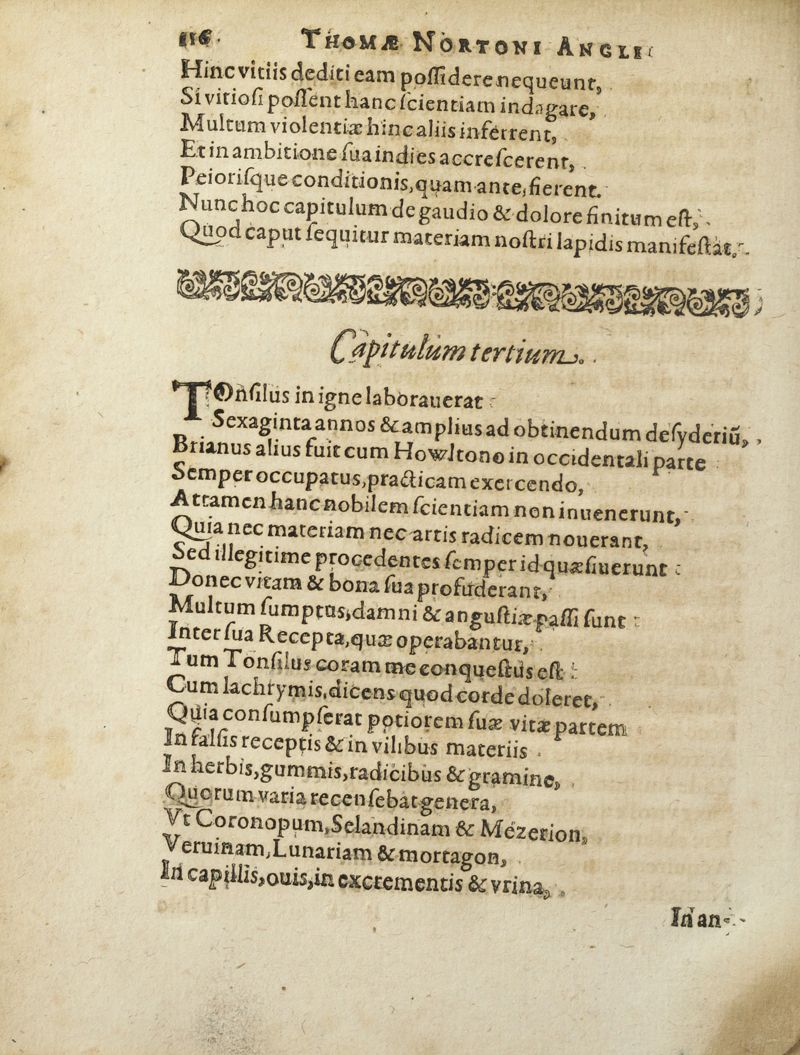 116. THOMÆ NORTONI ANGLI
Hinc vitiis dediti eam poſſidere nequeunt,
Si vitioſi poſſent hanc ſcientiam indagare,
Multum violentiæ hinc aliis inferrent,
Et in ambitione ſua indies accreſcerent,
Peioriſque conditionis, quam ante, fierent.
Nunc hoc capitulum de gaudio & dolore finitum eſt,
Quod caput ſequitur materiam noſtri lapidis manifeſtat.
Capitulum tertium.
TOnſilus in igne laborauerat
Sexaginta annos & amplius ad obtinendum deſyderiū,
Brianus alius fuit cum Howltono in occidentali parte
Semper occupatus, practicam exercendo,
Attamen hanc nobilem ſcientiam non inuenerunt,
Quia nec materiam nec artis radicem nouerant,
Sed illegitime procedentes ſemper id quæſiuerunt:
Donec vitam & bona ſua profuderant,
Multum ſumptus, damni & anguſtiæ paſſi ſunt:
Inter ſua Recepta, quæ operabantur,
Tum Tonſilus coram me conqueſtus eſt:
Cum lachrymis, dicens quod corde doleret,
Quia conſumpſerat potiorem ſuæ vitæ partem
In falſis receptis & in vilibus materiis.
In herbis, gummis, radicibus & gramine,
Quorum varia recenſebat genera,
Vt Coronopum, Selandinam & Mezerion,
Veruinam, Lunariam & mortagon,
In capillis, ouis, in excrementis & vrina,
In an-